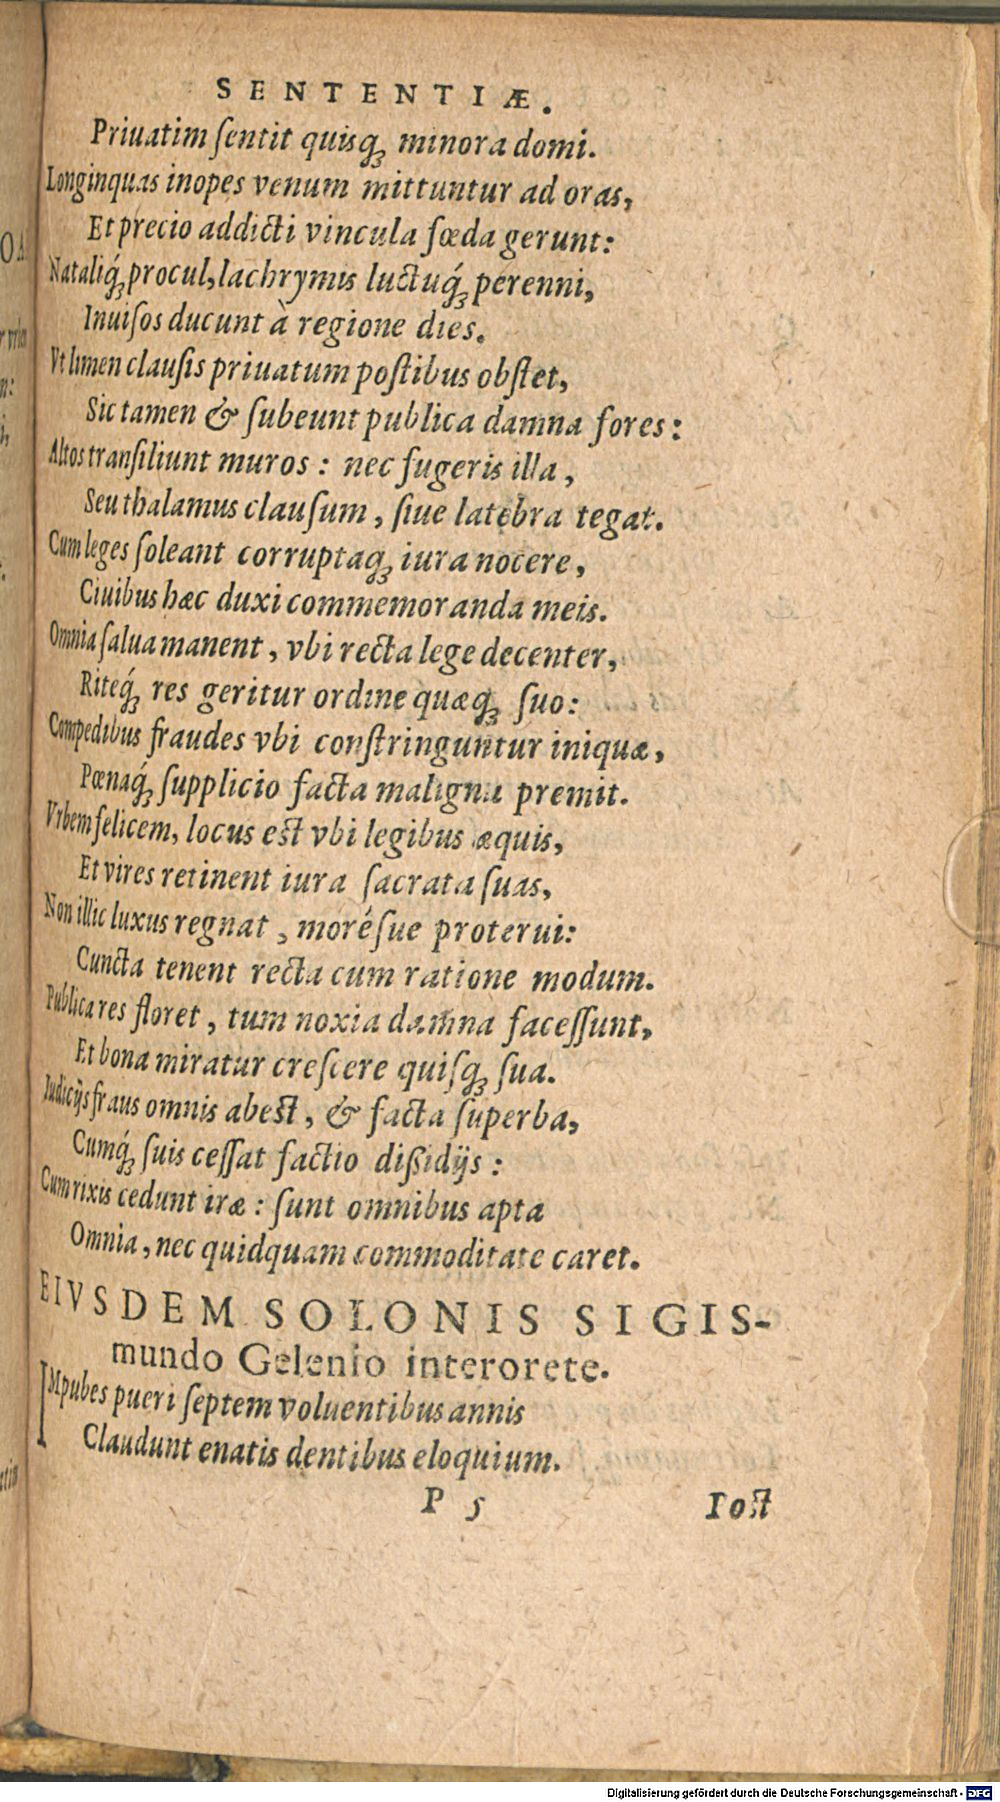 SENTENTIÆ.
Priuatim ſentit quisq; minora domi.
Longinquas inopes venum mittuntur ad oras,
Et precio addicti vincula fœda gerunt:
Nataliq́; procul, lachrymis luctuq́; perenni,
Inuiſos ducunt à regione dies.
Vt limen clauſis priuatum poſtibus obſtet,
Sic tamen & ſubeunt publica damna fores:
Altos tranſiliunt muros: nec fugeris illa,
Seu thalamus clauſum, ſiue latebra tegat.
Cum leges ſoleant corruptaq; iura nocere,
Ciuibus hæc duxi commemoranda meis.
Omnia ſalua manent, vbi recta lege decenter,
Riteq́; res geritur ordine quæq; ſuo:
Compedibus fraudes vbi conſtringuntur iniquæ,
Pœnaq́; ſupplicio facta maligna premit.
Vrbem felicem, locus eſt vbi legibus æquis,
Et vires retinent iura ſacrata ſuas,
Non illic luxus regnat, moréſue proterui:
Cuncta tenent recta cum ratione modum.
Publica res floret, tum noxia damna faceſſunt,
Et bona miratur creſcere quiſq; ſua.
Iudicijs fraus omnis abeſt, & facta ſuperba,
Cumq́; ſuis ceſſat factio dißidijs:
Cum rixis cedunt iræ: ſunt omnibus apta
Omnia, nec quidquam commoditate caret.
EIVSDEM SOLONIS SIGIS-
mundo Gelenio interorete.
IMpubes pueri ſeptem voluentibus annis
Claudunt enatis dentibus eloquium.
P 5 Ioſt
Digitalisierung gefördert durch die Deutsche Forschungsgemeinschaft - DFG